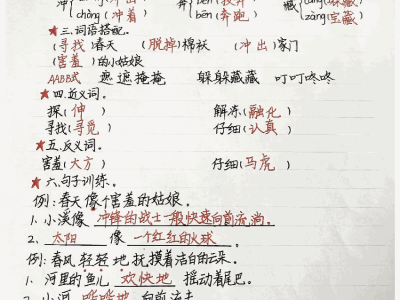 chòng(冲着) bēn(奔跑) zàng(宝藏)
★三.词语搭配.
(寻找)春天 (脱掉)棉袄 (冲出)家门
(害羞)的小姑娘
AABB式 遮遮掩掩 躲躲藏藏 叮叮咚咚
★四.近义词.
探(伸) 解冻(融化)
寻找(寻觅) 仔细(认真)
★五.反义词.
害羞(大方) 仔细(马虎)
★六.句子训练.
例:春天像个害羞的姑娘.
1.小溪像冲锋的战士一般快速向前流淌。
2、太阳像一个红红的火球。
例:春风轻轻地抚摸着洁白的云朵.
1.河里的鱼儿欢快地摇动着尾巴。
2.小河哗哗地向前流去